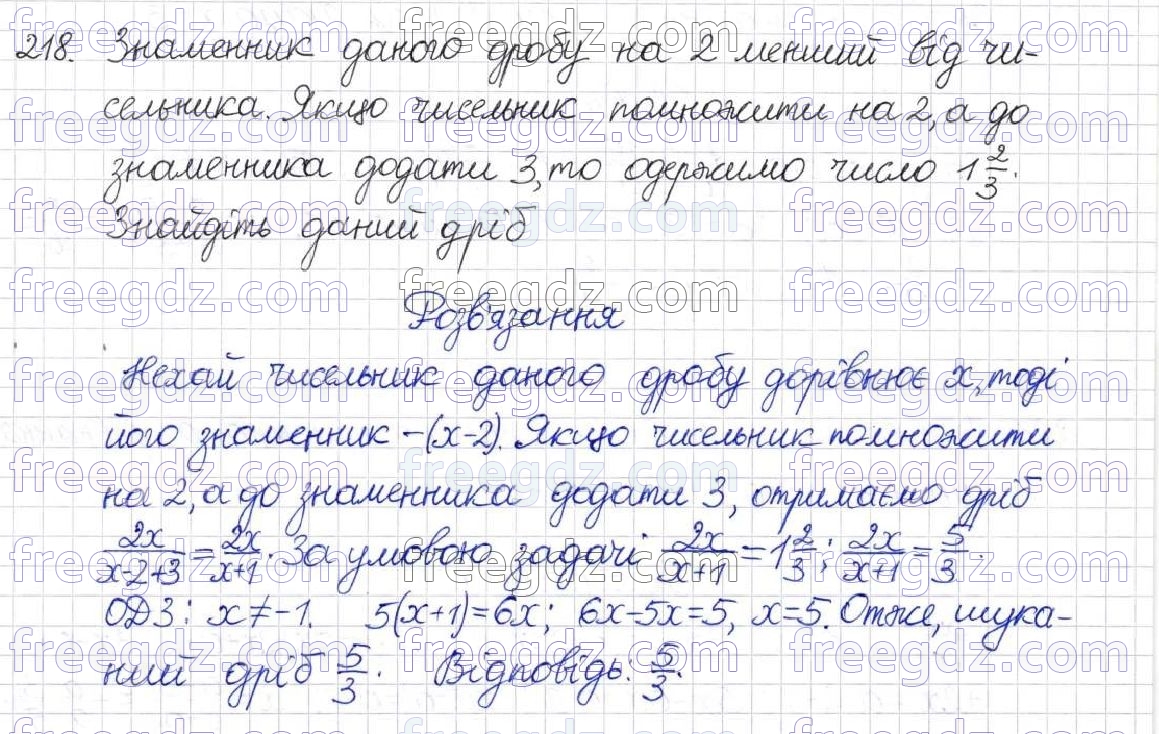 218. Знаменник даного дробу на 2 менший від чи-
сельника. Якщо чисельник помножити на 2, а до
знаменника додати 3, то одержимо число 1 2/3.
Знайдіть даний дріб
Розв'язання
Нехай чисельник даного дробу дорівнює x, тоді
його знаменник – (x-2). Якщо чисельник помножити
на 2, а до знаменника додати 3, отримаємо дріб
2x/(x-2+3) = 2x/(x+1). За умовою задачі 2x/(x+1) = 1 2/3; 2x/(x+1) = 5/3.
ОДЗ: x ≠ -1. 5(x+1)=6x; 6x-5x=5, x=5. Отже, шука-
ний дріб 5/3. Відповідь: 5/3.
freegdz.com